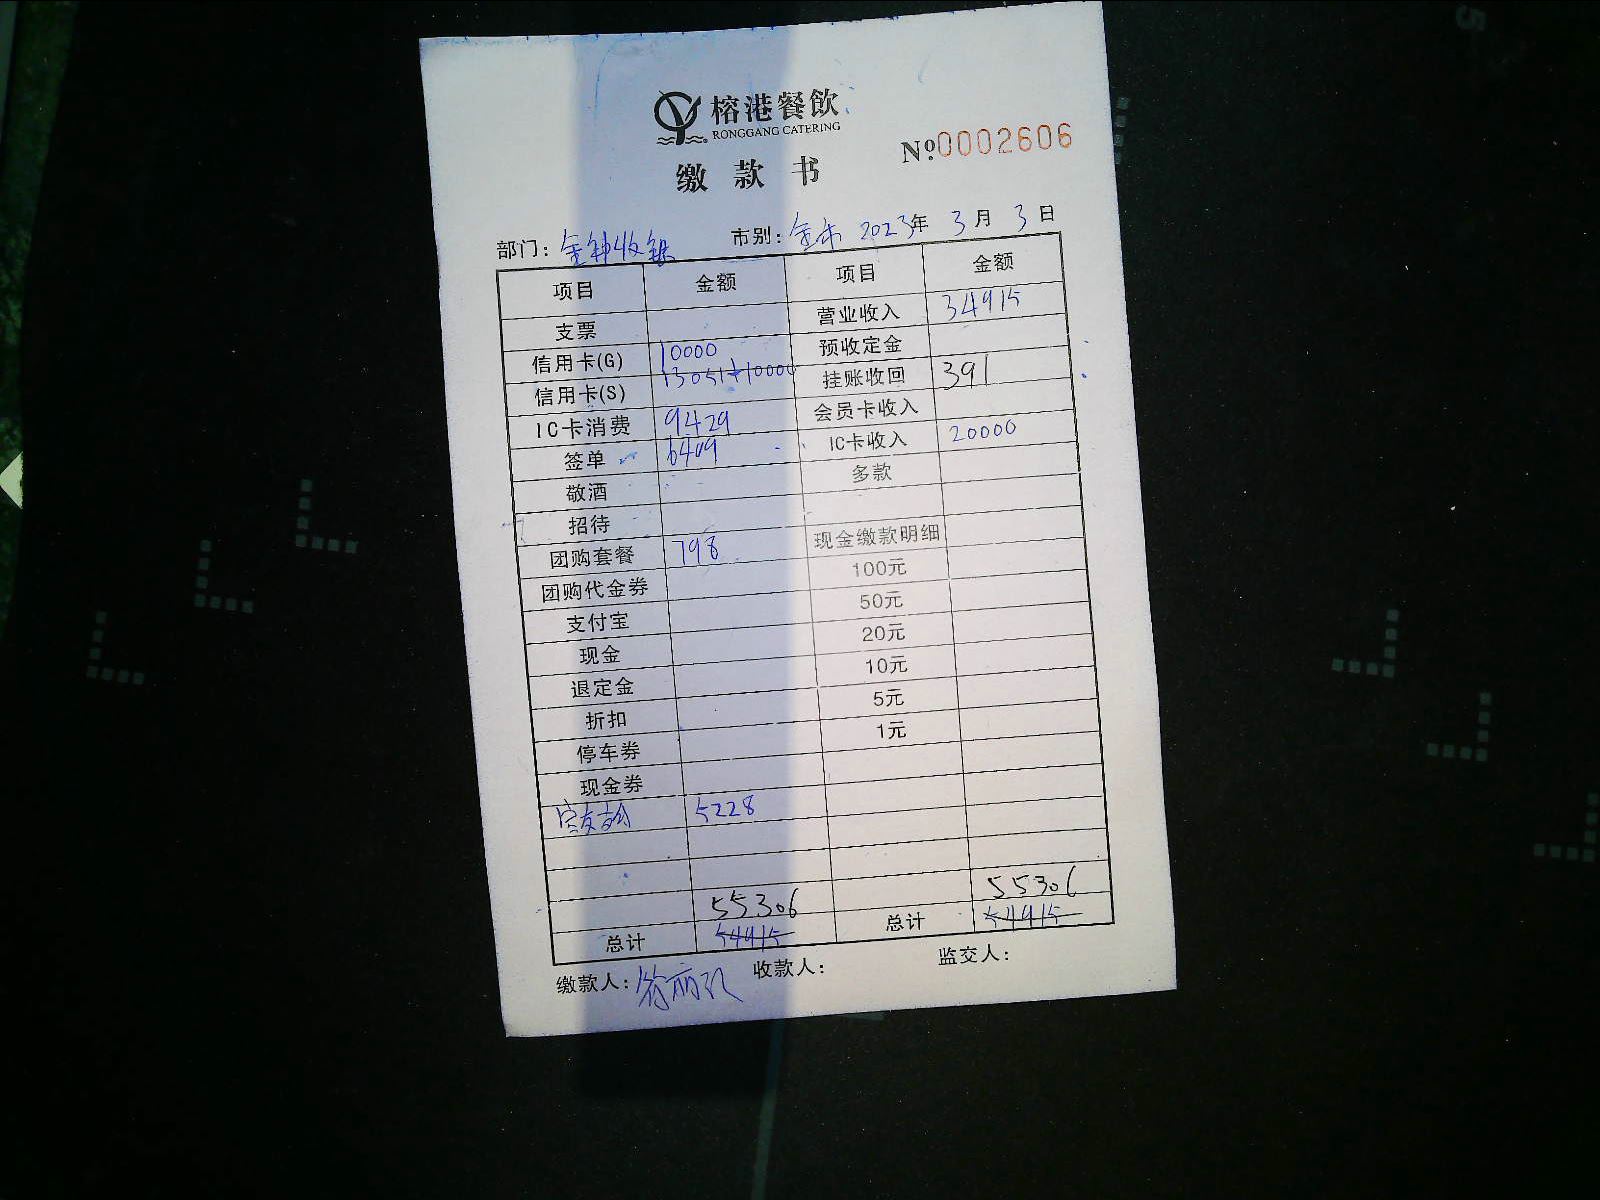 榕港餐饮
RONGGANG CATERING
缴款书
Nº0002606
部门: 金钟收银 市别: 全市 2023年 3月 3日
项目 金额 项目 金额
支票 营业收入 34915
信用卡(G) 10000 预收定金
信用卡(S) 13051+10000 挂账收回 391
IC卡消费 9429 会员卡收入
签单 6409 IC卡收入 20000
敬酒 多款
招待
团购套餐 798 现金缴款明细
团购代金券 100元
支付宝 50元
现金 20元
退定金 10元
折扣 5元
停车券 1元
现金券
5228
55306 55306
总计 54915 总计 54915
缴款人: 收款人: 监交人: